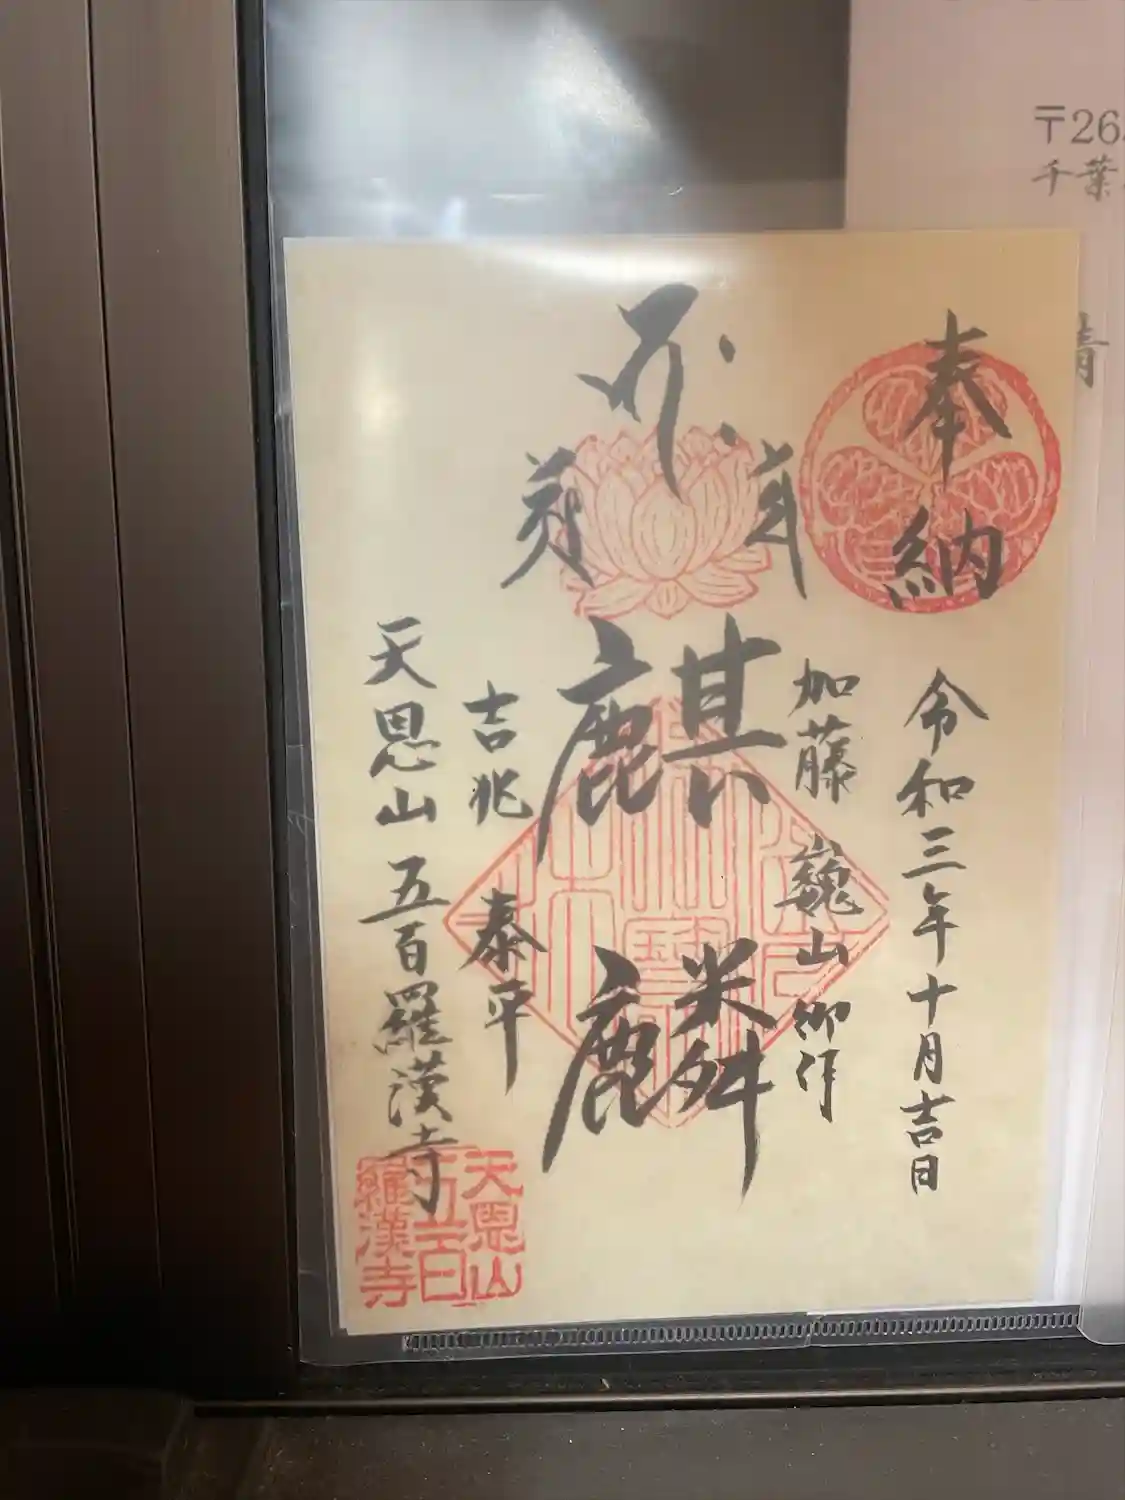 〒26
千葉
奉納
令和三年十月吉日
加藤 巍山 御作
麒麟
吉兆 泰平
天恩山 五百羅漢寺
天恩山
五百
羅漢寺